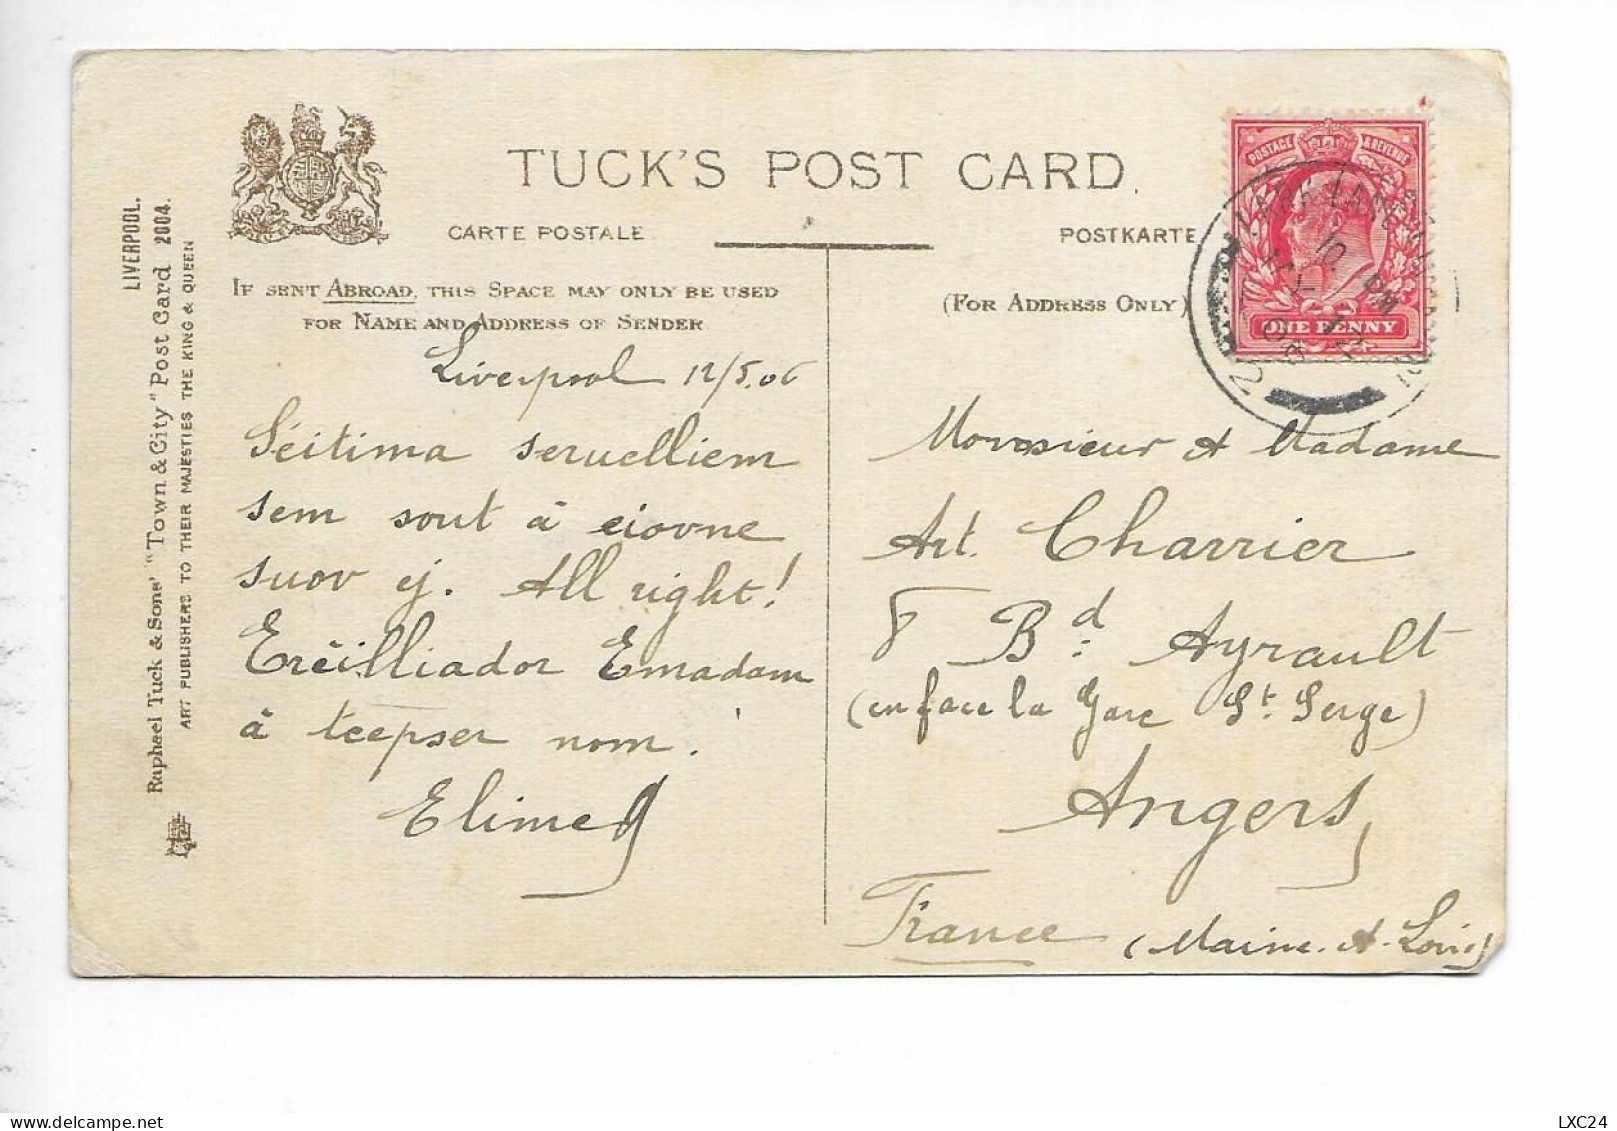 TUCK'S POST CARD.
CARTE POSTALE
POSTKARTE
IF SENT ABROAD, THIS SPACE MAY ONLY BE USED
FOR NAME AND ADDRESS OF SENDER
(FOR ADDRESS ONLY)
LIVERPOOL.
Raphael Tuck & Sons' "Town & City" Post Card 2004.
ART PUBLISHERS TO THEIR MAJESTIES THE KING & QUEEN
POSTAGE & REVENUE
ONE PENNY
Liverpool 12/5.06
Séitima seruelliem
sem sout à eiovne
suov ej. All right!
Erëilliador Emadam
à teepser nom.
Elimé
Monsieur et Madame
Art. Charrier
8 Bd Ayrault
(en face la Gare St. Serge)
Angers,
France (Maine-et-Loire)
LXC24